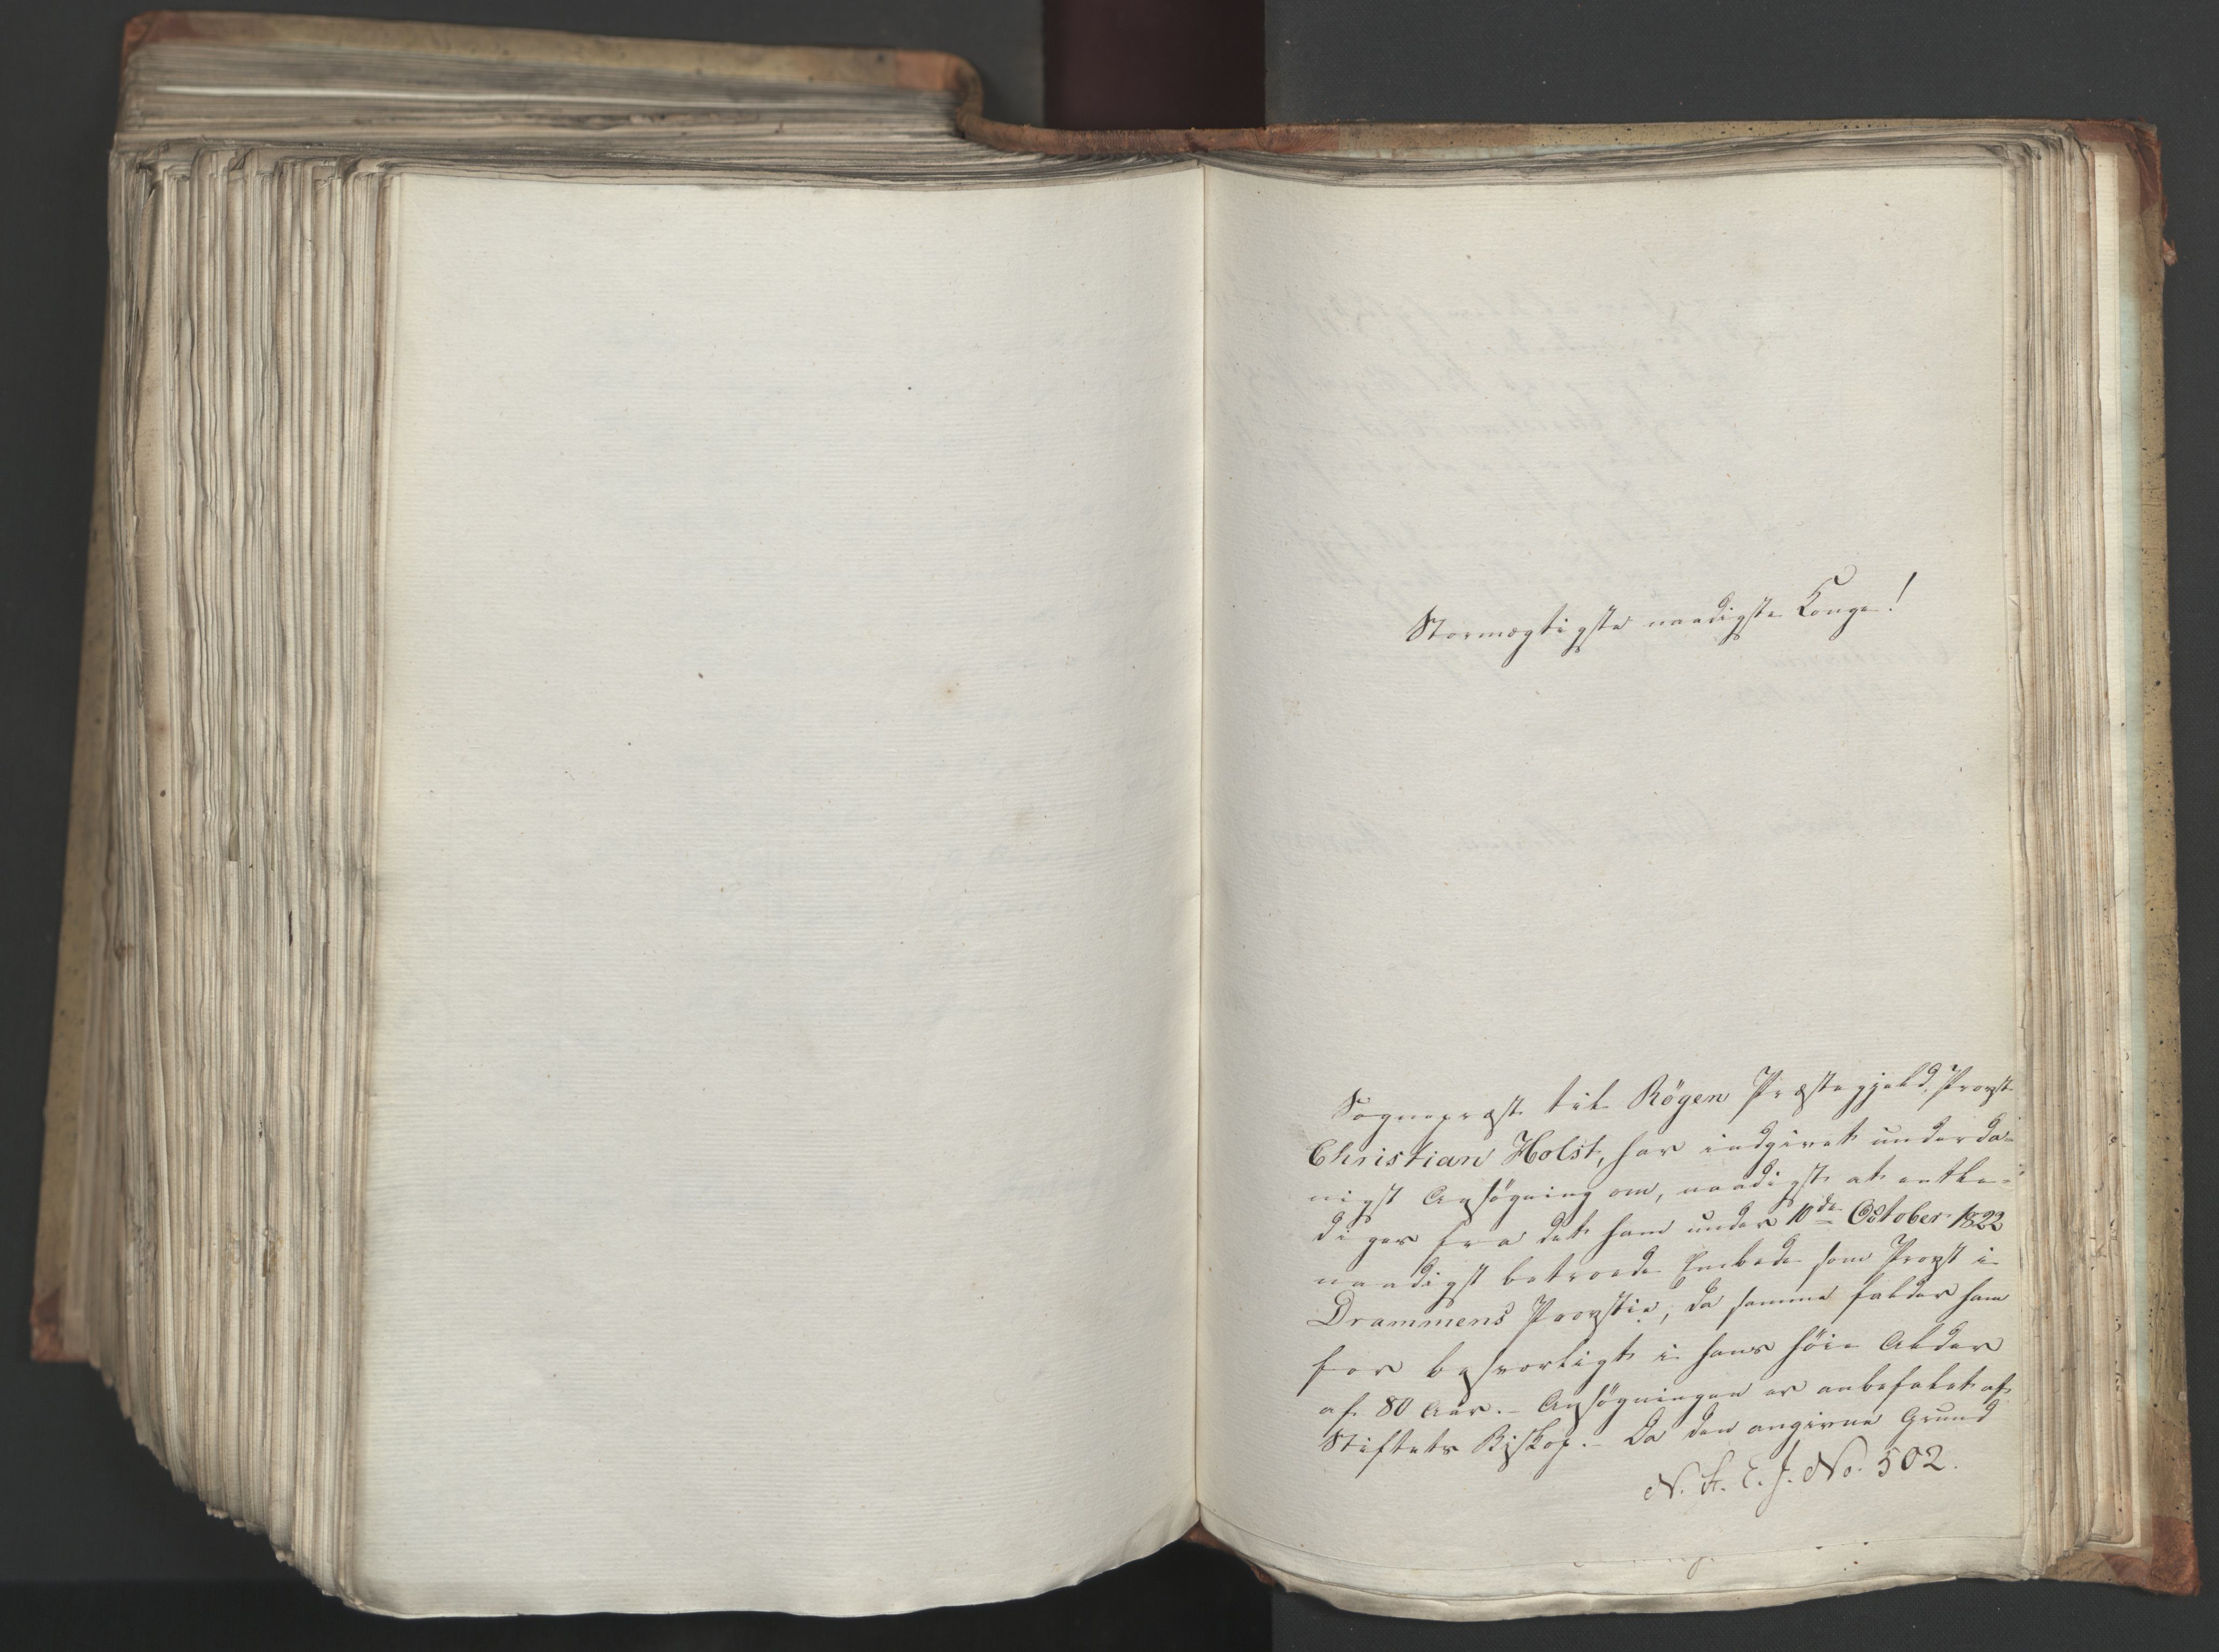 Stormægtigste naadigste Konge!
Sognepræst til Rögen Præstegjeld, Provst
Christian Holst, har indgivet underda-
nigst Ansögning om, naadigst at entle-
diges fra det ham under 10de October 1822
naadigst betroede Embede som Provst i
Drammens Provstie, da samme falder ham
for besværligt i hans höie Alder
af 80 Aar. – Ansögningen er anbefalet af
Stiftets Biskop. – Da den angivne Grund
N. A. E. J. No. 502.